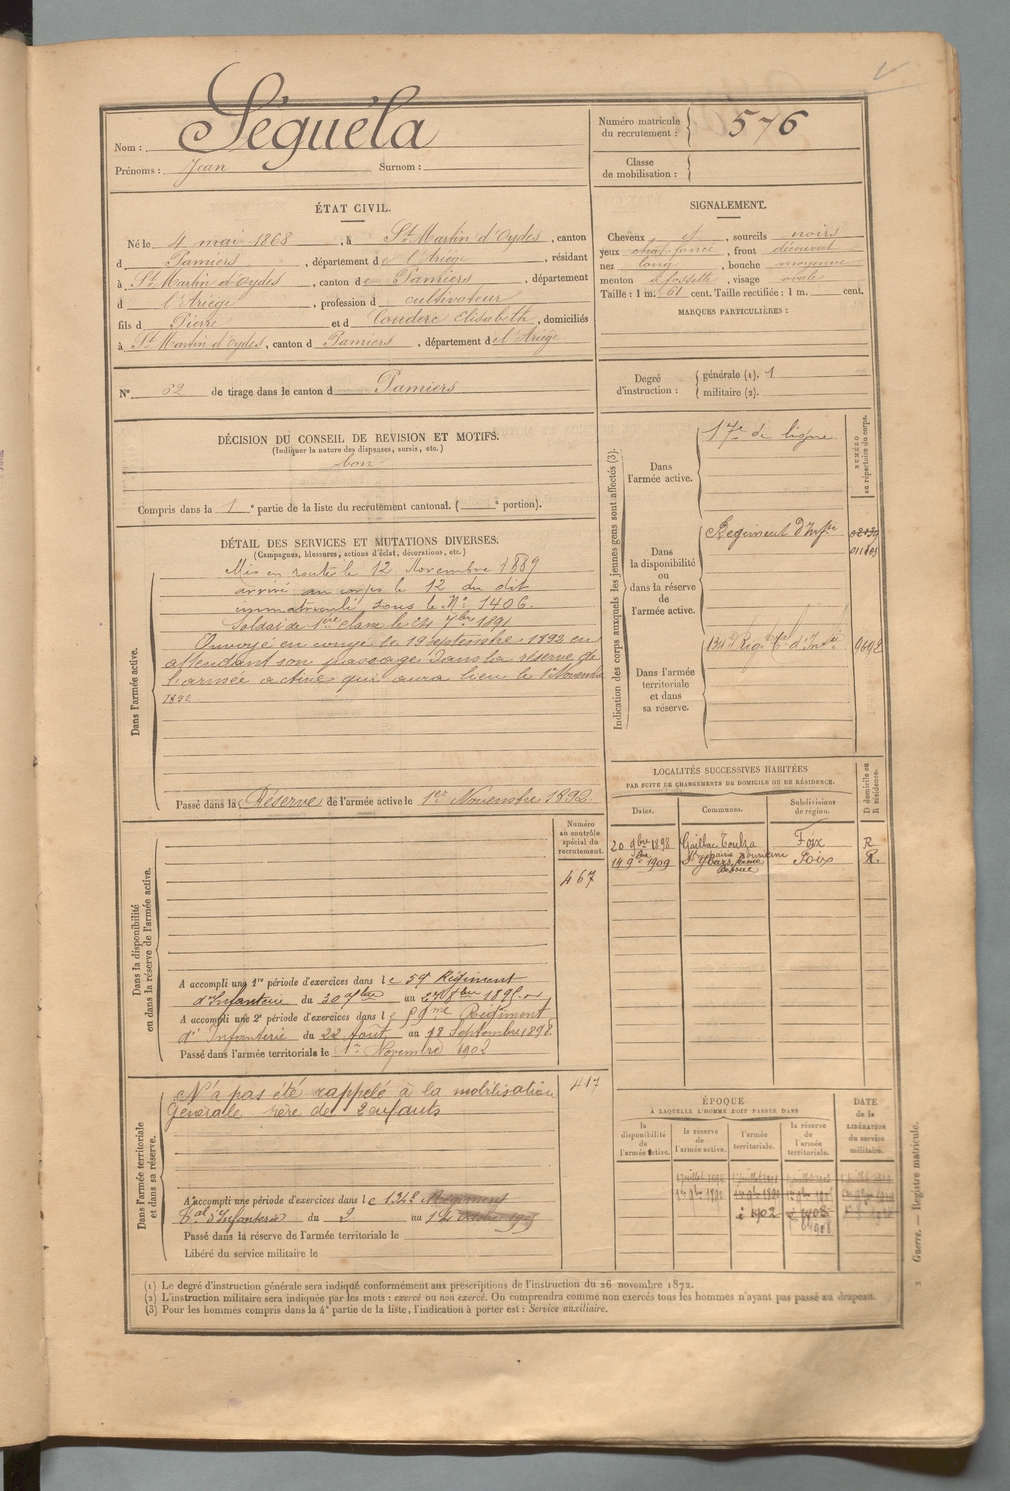 Nom : Séguéla
Prénoms : Jean Surnom :
Numéro matricule du recrutement : 576
Classe de mobilisation :
ÉTAT CIVIL.
Né le 4 mai 1868, à St Martin d'Oydes, canton
d Pamiers, département de l'Ariège, résidant
à St Martin d'Oydes, canton de Pamiers, département
d l'Ariège, profession d cultivateur
fils d Pierre et d Couderc Elisabeth, domiciliés
à St Martin d'Oydes, canton d Pamiers, département de l'Ariège
N° 62 de tirage dans le canton d Pamiers
SIGNALEMENT.
Cheveux et, sourcils noirs
yeux chat. foncé, front découvert
nez long, bouche moyenne
menton à fossette, visage ovale
Taille : 1 m. 61 cent. Taille rectifiée : 1 m. cent.
MARQUES PARTICULIÈRES :
Degré d'instruction : générale (1). 1
militaire (2).
DÉCISION DU CONSEIL DE REVISION ET MOTIFS.
(Indiquer la nature des dispenses, sursis, etc.)
bon
Compris dans la 1e partie de la liste du recrutement cantonal. ( e portion).
DÉTAIL DES SERVICES ET MUTATIONS DIVERSES.
(Campagnes, blessures, actions d'éclat, décorations, etc.)
Dans l'armée active.
Mis en route le 12 Novembre 1889
arrivé au corps le 12 du dit
immatriculé sous le N° 1406.
Soldat de 1re classe le 24 7bre 1891
Envoyé en congé le 19 septembre 1892 en
attendant son passage dans la réserve de
l'armée active qui aura lieu le 1er Novembre
1892
Passé dans la Réserve de l'armée active le 1er Novembre 1892.
Indication des corps auxquels les jeunes gens sont affectés (3).
NUMÉRO au répertoire du corps.
Dans l'armée active.
17e de ligne
Dans la disponibilité ou dans la réserve de l'armée active.
Régiment d'Infie
Dans l'armée territoriale et dans sa réserve.
134e Régt d'Infie
LOCALITÉS SUCCESSIVES HABITÉES
PAR SUITE DE CHANGEMENTS DE DOMICILE OU DE RÉSIDENCE.
Dates. Communes. Subdivisions de région. D domicile ou R résidence.
20 9bre 1898 Gaillac Toulza Foix R
14 9bre 1909 Foix R.
Dans la disponibilité ou dans la réserve de l'armée active.
Numéro au contrôle spécial du recrutement.
467
A accompli une 1re période d'exercices dans le 59e Régiment
d'Infanterie du 30 7bre au 27 8bre 1895
A accompli une 2e période d'exercices dans le 59me Régiment
d'Infanterie du 22 Août au 18 Septembre 1898
Passé dans l'armée territoriale le 1er Novembre 1902
Dans l'armée territoriale et dans sa réserve.
417
N'a pas été rappelé à la mobilisation
Générale père de 2 enfants
A accompli une période d'exercices dans le 134e Régiment
d'Infanterie du 2 au 14 Octobre 1905
Passé dans la réserve de l'armée territoriale le
Libéré du service militaire le
ÉPOQUE
À LAQUELLE L'HOMME DOIT PASSER DANS
la disponibilité de l'armée active.
la réserve de l'armée active.
l'armée territoriale.
la réserve de l'armée territoriale.
DATE de la LIBÉRATION du service militaire.
1902
1908
(1) Le degré d'instruction générale sera indiqué conformément aux prescriptions de l'instruction du 26 novembre 1872.
(2) L'instruction militaire sera indiquée par les mots : exercé ou non exercé. On comprendra comme non exercés tous les hommes n'ayant pas passé au drapeau.
(3) Pour les hommes compris dans la 4e partie de la liste, l'indication à porter est : Service auxiliaire.
2 Guerre. — Registre matricule.